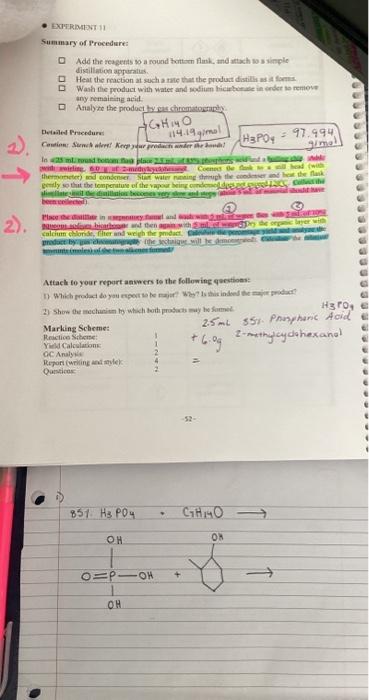 • EXPERIMENT 11
Summary of Procedure:
Add the reagents to a round bottom flask, and attach to a simple
distillation apparatus.
Heat the reaction at such a rate that the product distills as it forms.
Wash the product with water and sodium bicarbonate in order to remove
any remaining acid.
Analyze the product by gas chromatography.
C7H14O
114.19g/mol
Detailed Procedure:
H3PO4 = 97.994
g/mol
Caution: Stench alert! Keep your products under the hoods!
2).
In a 25 mL round bottom flask place 2.5 mL of 85% phosphoric acid and a boiling chip. While
with swirling, 6.0 g of 2-methylcyclohexanol. Connect the flask to a still head (with
thermometer) and condenser. Start water running through the condenser and heat the flask
gently so that the temperature of the vapour being condensed does not exceed
distillate until the distillation becomes very slow and stops about 5 mL of material should have
been collected).
①
②
2).
Place the distillate in a separatory funnel and wash with 5 mL of water then with 5 mL of 10%
aqueous sodium bicarbonate and then again with 5 mL of water. ③ Dry the organic layer with
calcium chloride, filter and weigh the product. Calculate the percentage yield and analyze the
product by gas chromatography (the technique will be demonstrated). Calculate the relative
amounts (moles) of the two alkenes formed.
Attach to your report answers to the following questions:
1) Which product do you expect to be major? Why? Is this indeed the major product?
2) Show the mechanism by which both products may be formed.
H3PO4
2.5mL 85% Phosphoric Acid
+ 6.0g 2-methylcyclohexanol
=
Marking Scheme:
Reaction Scheme: 1
Yield Calculations: 1
GC Analysis: 2
Report (writing and style): 4
Questions: 2
-52-
1)
85% H3PO4 + C7H14O →
OH
OH
O=P—OH + →
OH